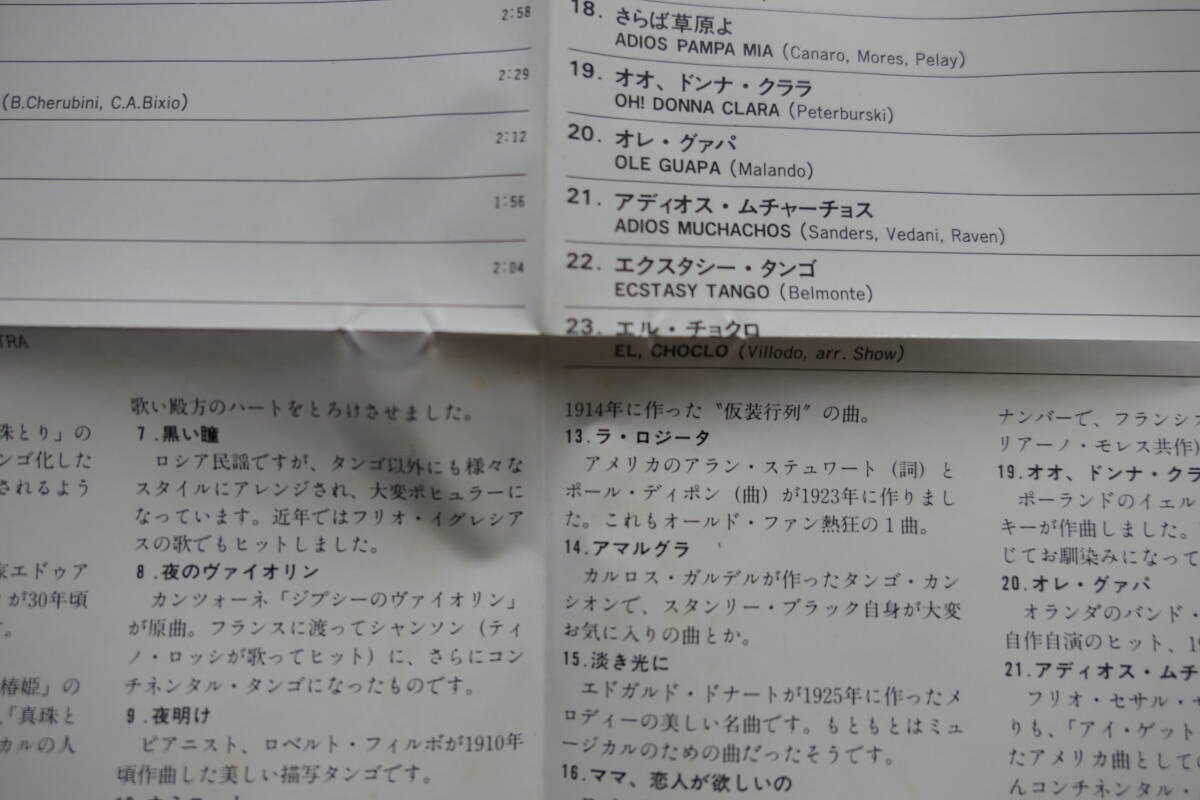 2:58
2:29
(B.Cherubini, C.A.Bixio)
2:12
1:56
2:04
18. さらば草原よ
ADIOS PAMPA MIA (Canaro, Mores, Pelay)
19. オオ、ドンナ・クララ
OH! DONNA CLARA (Peterburski)
20. オレ・グァパ
OLE GUAPA (Malando)
21. アディオス・ムチャーチョス
ADIOS MUCHACHOS (Sanders, Vedani, Raven)
22. エクスタシー・タンゴ
ECSTASY TANGO (Belmonte)
23. エル・チョクロ
EL, CHOCLO (Villodo, arr. Show)
TRA
珠とり」の
ンゴ化した
されるよう
家エドゥア
が30年頃
す。
椿姫」の
「真珠と
カルの人
歌い殿方のハートをとろけさせました。
7.黒い瞳
ロシア民謡ですが、タンゴ以外にも様々な
スタイルにアレンジされ、大変ポピュラーに
なっています。近年ではフリオ・イグレシア
スの歌でもヒットしました。
8.夜のヴァイオリン
カンツォーネ「ジプシーのヴァイオリン」
が原曲。フランスに渡ってシャンソン（ティ
ノ・ロッシが歌ってヒット）に、さらにコン
チネンタル・タンゴになったものです。
9.夜明け
ピアニスト、ロベルト・フィルポが1910年
頃作曲した美しい描写タンゴです。
1914年に作った〝仮装行列〟の曲。
13.ラ・ロジータ
アメリカのアラン・ステュワート（詞）と
ポール・ディポン（曲）が1923年に作りまし
た。これもオールド・ファン熱狂の１曲。
14.アマルグラ
カルロス・ガルデルが作ったタンゴ・カン
シオンで、スタンリー・ブラック自身が大変
お気に入りの曲とか。
15.淡き光に
エドガルド・ドナートが1925年に作ったメ
ロディーの美しい名曲です。もともとはミュ
ージカルのための曲だったそうです。
16.ママ、恋人が欲しいの
ナンバーで、フランシス
リアーノ・モレス共作)
19.オオ、ドンナ・クラ
ポーランドのイェル
キーが作曲しました。
じてお馴染みになって
20.オレ・グァパ
オランダのバンド・
自作自演のヒット、19
21.アディオス・ムチ
フリオ・セサル・
りも、「アイ・ゲット
たアメリカ曲としての
んコンチネンタル・